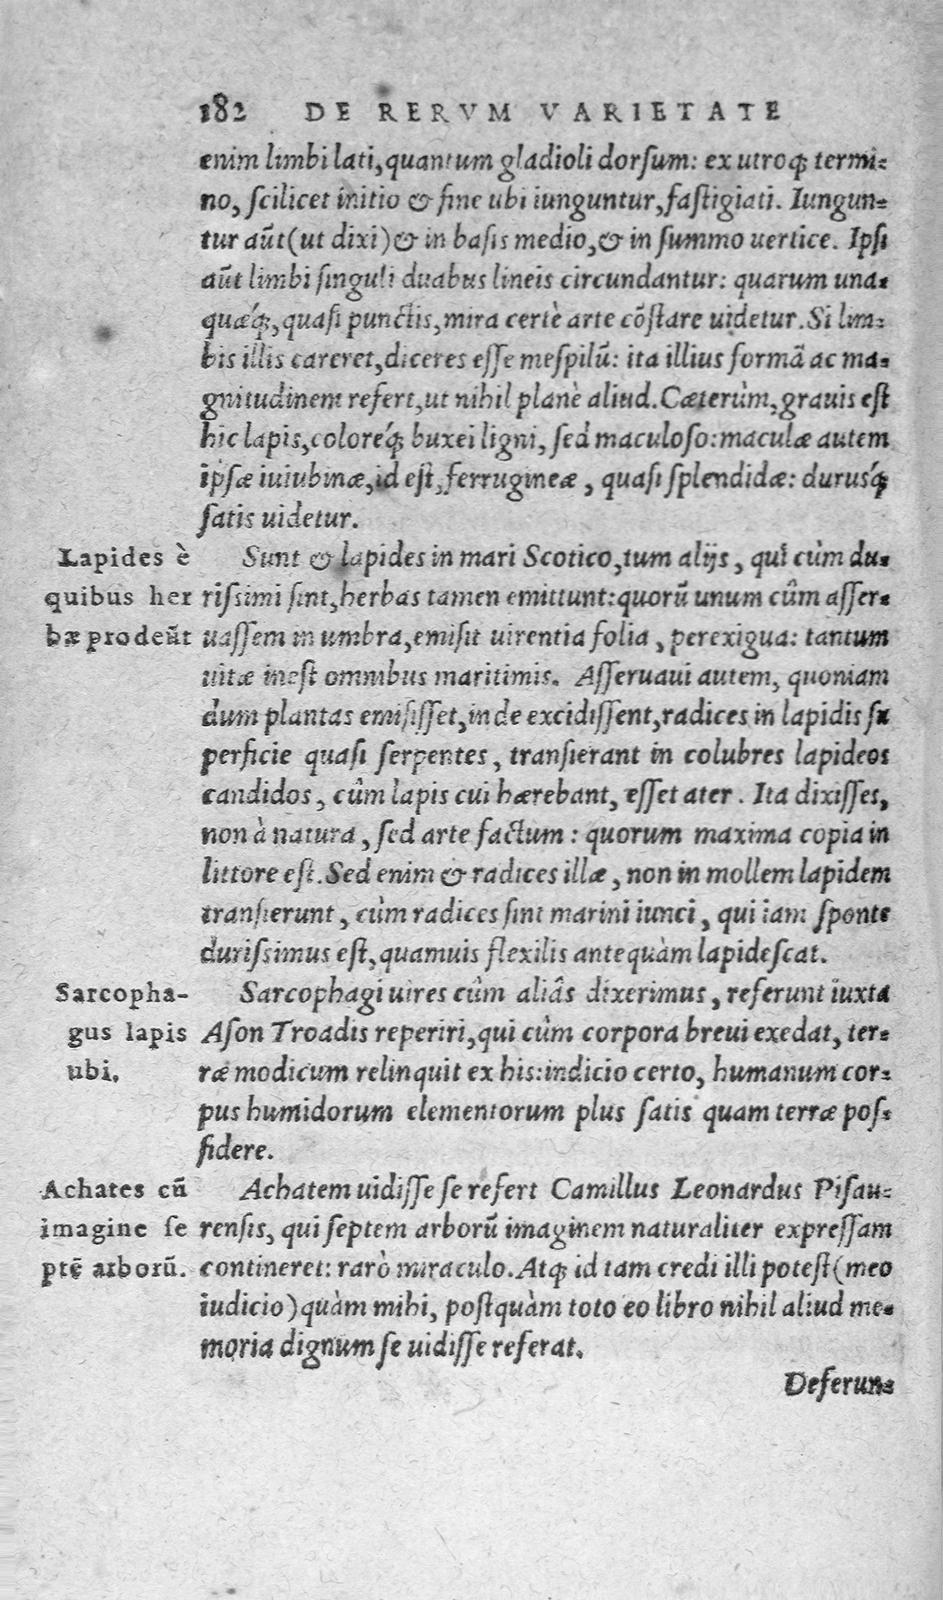 182 DE RERVM VARIETATE
enim limbi lati, quantum gladioli dorsum: ex utroq́; termi-
no, scilicet initio & fine ubi iunguntur, fastigiati. Iungun-
tur aũt (ut dixi) & in basis medio, & in summo uertice. Ipsi
aũt limbi singuli duabus lineis circundantur: quarum una-
quæq́;, quasi punctis, mira certè arte cõstare uidetur. Si lim-
bis illis careret, diceres esse mespilũ: ita illius formã ac ma-
gnitudinem refert, ut nihil planè aliud. Cæterùm, grauis est
hic lapis, coloreq́; buxei ligni, sed maculoso: maculæ autem
ipsæ iuiubinæ, id est, ferrugineæ, quasi splendidæ: durusq́;
satis uidetur.
Lapides è
quibus her
bæ prodeũt
Sunt & lapides in mari Scotico, tum alijs, qui cùm du-
rissimi sint, herbas tamen emittunt: quorũ unum cûm asser-
uassem in umbra, emisit uirentia folia, perexigua: tantum
uitæ inest omnibus maritimis. Asseruaui autem, quoniam
dum plantas emisisset, inde excidissent, radices in lapidis su
perficie quasi serpentes, transierant in colubres lapideos
candidos, cûm lapis cui hærebant, esset ater. Ita dixisses,
non à natura, sed arte factum: quorum maxima copia in
littore est. Sed enim & radices illæ, non in mollem lapidem
transierunt, cùm radices sint marini iunci, qui iam sponte
durissimus est, quamuis flexilis antequàm lapidescat.
Sarcopha-
gus lapis
ubi.
Sarcophagi uires cûm aliâs dixerimus, referunt iuxta
Ason Troadis reperiri, qui cûm corpora breui exedat, ter-
ræ modicum relinquit ex his: indicio certo, humanum cor-
pus humidorum elementorum plus satis quam terræ pos-
sidere.
Achates cũ
imagine se
ptẽ arborũ.
Achatem uidisse se refert Camillus Leonardus Pisau-
rensis, qui septem arborũ imaginem naturaliter expressam
contineret: rarò miraculo. Atq; id tam credi illi potest (meo
iudicio) quàm mihi, postquàm toto eo libro nihil aliud me-
moria dignum se uidisse referat.
Deferun-